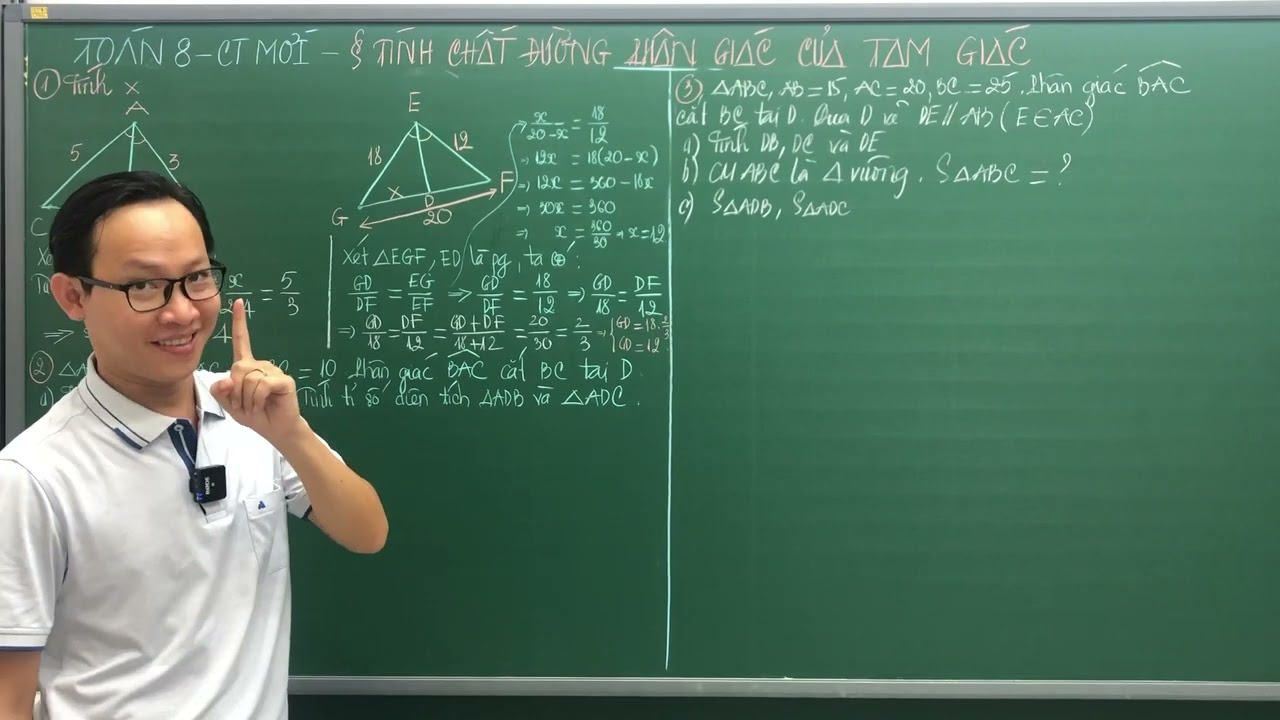 TOÁN 8 - CT MỚI - § TÍNH CHẤT ĐƯỜNG PHÂN GIÁC CỦA TAM GIÁC
① Tính x
A
5
3
C
x/2,4 = 5/3
E
18
12
G
x
D
F
20
x/(20-x) = 18/12
⇒ 12x = 18(20-x)
⇒ 12x = 360 - 18x
⇒ 30x = 360
⇒ x = 360/30 ⇒ x = 12
Xét △EGF, ED là pg, ta có:
GD/DF = EG/EF ⇒ GD/DF = 18/12 ⇒ GD/18 = DF/12
⇒ GD/18 = DF/12 = (GD+DF)/(18+12) = 20/30 = 2/3 ⇒ { GD = 18.2/3
GD = 12
② = 10 Phân giác BAC cắt BC tại D.
a) Tính tỉ số diện tích △ADB và △ADC.
③ △ABC, AB = 15, AC = 20, BC = 25. Phân giác BAC
cắt BC tại D. Qua D vẽ DE // AB (E ∈ AC)
a) Tính DB, DC và DE
b) CM ABC là △ vuông. S△ABC = ?
c) S△ADB, S△ADC